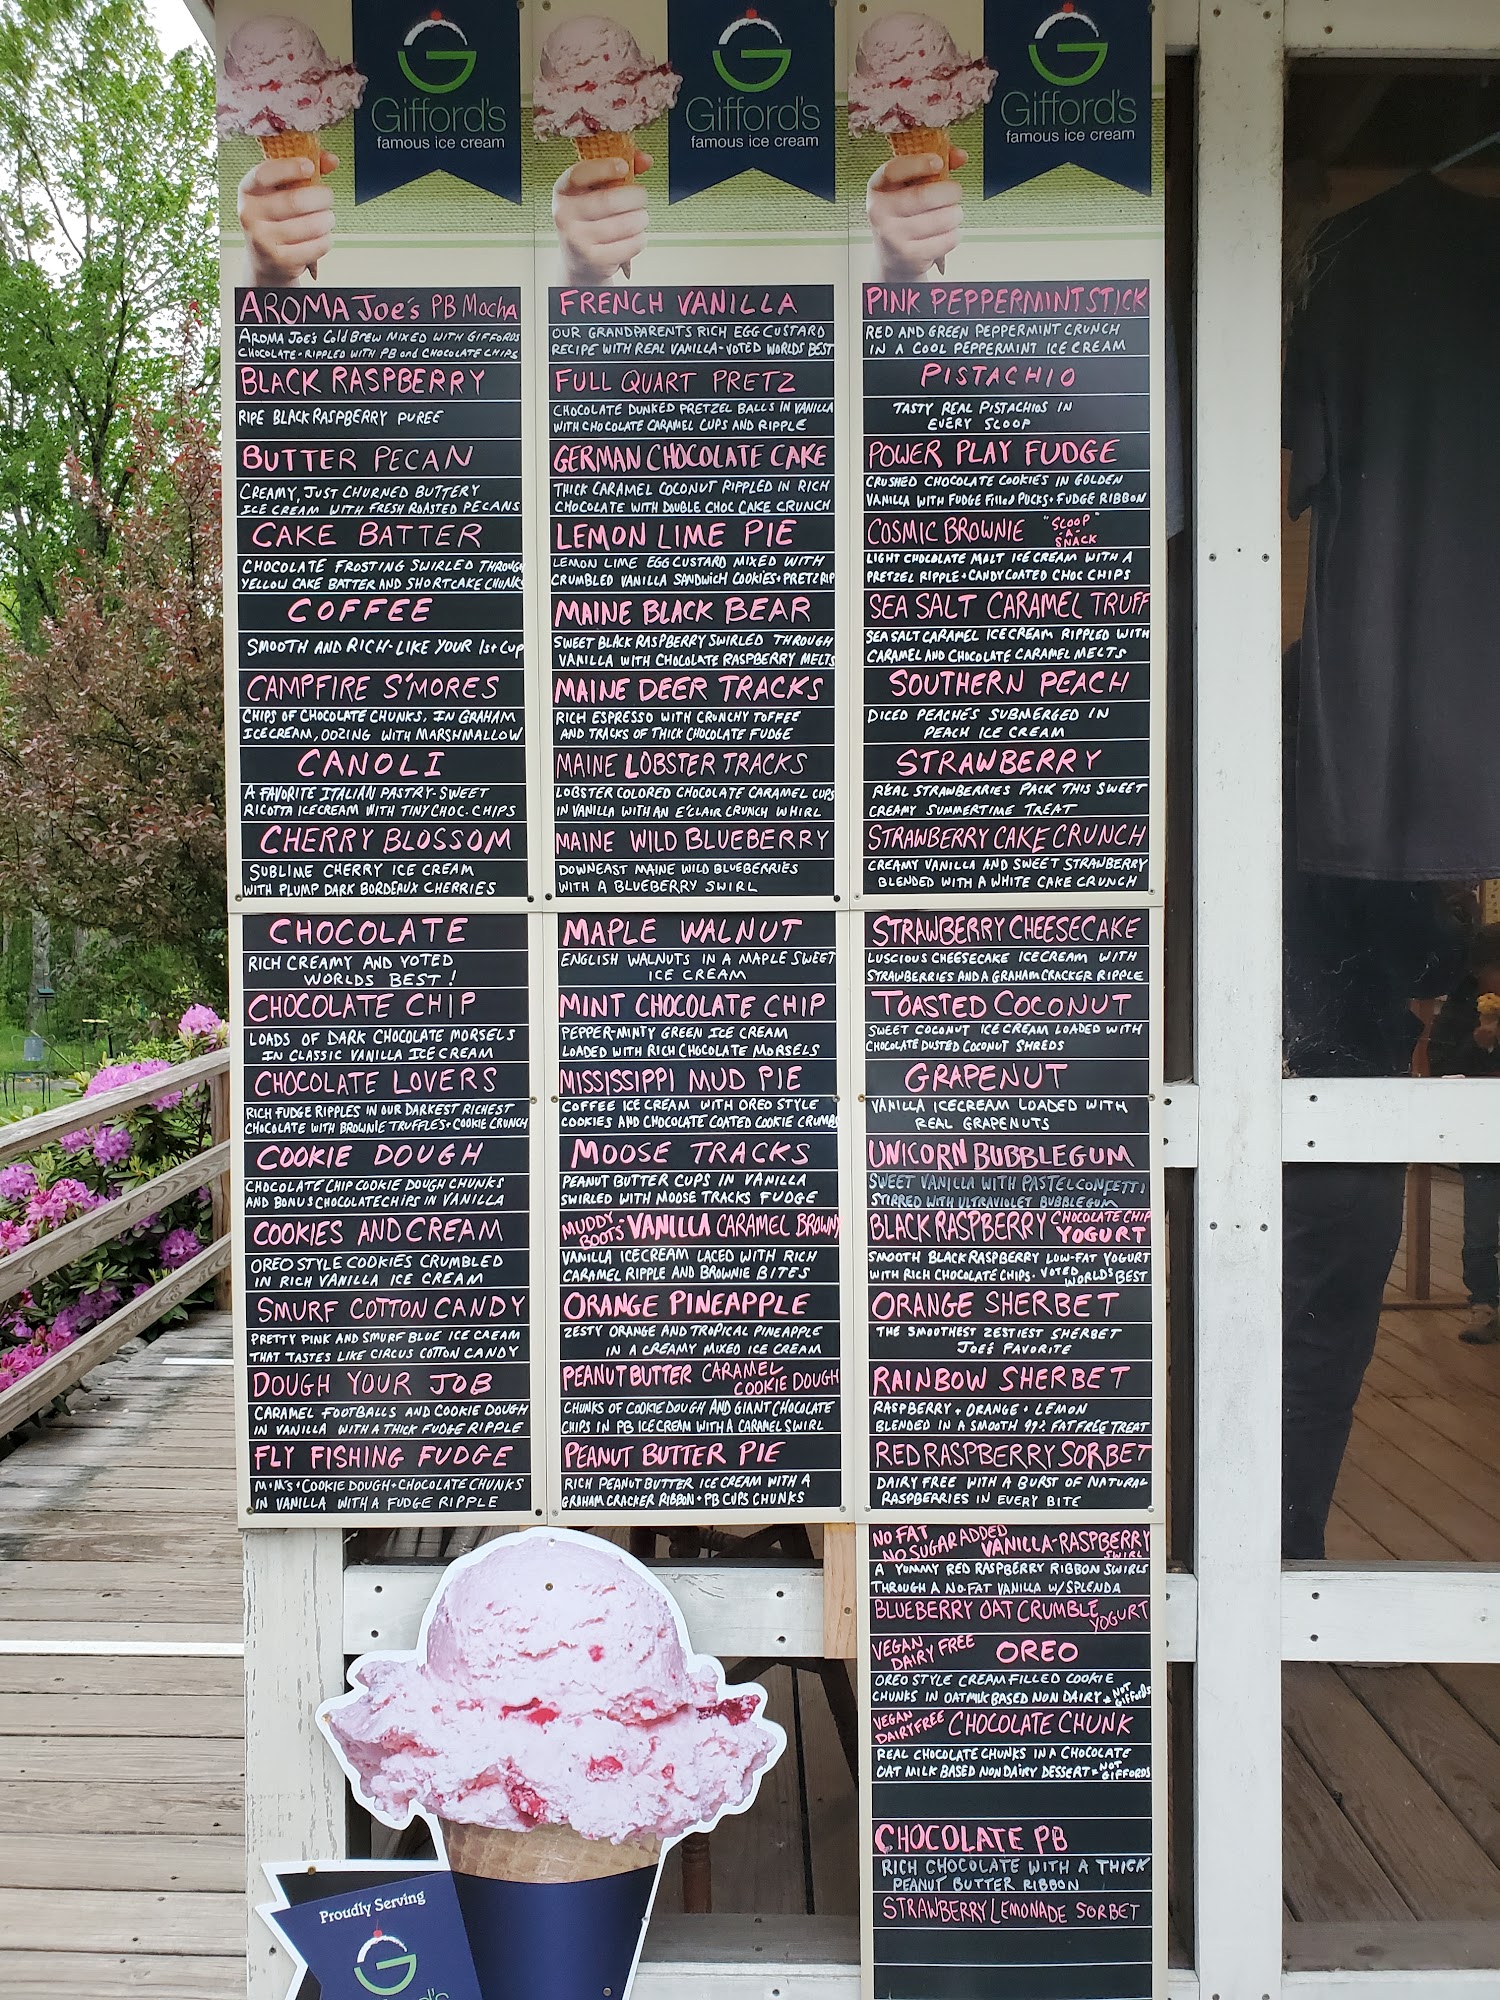 Gifford's
famous ice cream
AROMA Joe's PB MOCHA
AROMA JOE'S COLD BREW MIXED WITH GIFFORDS
CHOCOLATE - RIPPLED WITH PB and CHOCOLATE CHIPS
BLACK RASPBERRY
RIPE BLACK RASPBERRY PUREE
BUTTER PECAN
CREAMY, JUST CHURNED BUTTERY
ICE CREAM WITH FRESH ROASTED PECANS
CAKE BATTER
CHOCOLATE FROSTING SWIRLED THROUGH
YELLOW CAKE BATTER AND SHORTCAKE CHUNKS
COFFEE
SMOOTH AND RICH-LIKE YOUR 1st CUP
CAMPFIRE S'MORES
CHIPS OF CHOCOLATE CHUNKS, IN GRAHAM
ICECREAM, OOZING WITH MARSHMALLOW
CANOLI
A FAVORITE ITALIAN PASTRY-SWEET
RICOTTA ICECREAM WITH TINY CHOC. CHIPS
CHERRY BLOSSOM
SUBLIME CHERRY ICE CREAM
WITH PLUMP DARK BORDEAUX CHERRIES
CHOCOLATE
RICH CREAMY AND VOTED
WORLDS BEST!
CHOCOLATE CHIP
LOADS OF DARK CHOCOLATE MORSELS
IN CLASSIC VANILLA ICE CREAM
CHOCOLATE LOVERS
RICH FUDGE RIPPLES IN OUR DARKEST RICHEST
CHOCOLATE WITH BROWNIE TRUFFLES + COOKIE CRUNCH
COOKIE DOUGH
CHOCOLATE CHIP COOKIE DOUGH CHUNKS
AND BONUS CHOCOLATE CHIPS IN VANILLA
COOKIES AND CREAM
OREO STYLE COOKIES CRUMBLED
IN RICH VANILLA ICE CREAM
SMURF COTTON CANDY
PRETTY PINK AND SMURF BLUE ICE CREAM
THAT TASTES LIKE CIRCUS COTTON CANDY
DOUGH YOUR JOB
CARAMEL FOOTBALLS AND COOKIE DOUGH
IN VANILLA WITH A THICK FUDGE RIPPLE
FLY FISHING FUDGE
M+M'S + COOKIE DOUGH + CHOCOLATE CHUNKS
IN VANILLA WITH A FUDGE RIPPLE
Gifford's
famous ice cream
FRENCH VANILLA
OUR GRANDPARENTS RICH EGG CUSTARD
RECIPE WITH REAL VANILLA - VOTED WORLDS BEST
FULL QUART PRETZ
CHOCOLATE DUNKED PRETZEL BALLS IN VANILLA
WITH CHOCOLATE CARAMEL CUPS AND RIPPLE
GERMAN CHOCOLATE CAKE
THICK CARAMEL COCONUT RIPPLED IN RICH
CHOCOLATE WITH DOUBLE CHOC CAKE CRUNCH
LEMON LIME PIE
LEMON LIME EGG CUSTARD MIXED WITH
CRUMBLED VANILLA SANDWICH COOKIES + PRETZ RIP
MAINE BLACK BEAR
SWEET BLACK RASPBERRY SWIRLED THROUGH
VANILLA WITH CHOCOLATE RASPBERRY MELTS
MAINE DEER TRACKS
RICH ESPRESSO WITH CRUNCHY TOFFEE
AND TRACKS OF THICK CHOCOLATE FUDGE
MAINE LOBSTER TRACKS
LOBSTER COLORED CHOCOLATE CARAMEL CUPS
IN VANILLA WITH AN E'CLAIR CRUNCH WHIRL
MAINE WILD BLUEBERRY
DOWNEAST MAINE WILD BLUEBERRIES
WITH A BLUEBERRY SWIRL
MAPLE WALNUT
ENGLISH WALNUTS IN A MAPLE SWEET
ICE CREAM
MINT CHOCOLATE CHIP
PEPPER-MINTY GREEN ICE CREAM
LOADED WITH RICH CHOCOLATE MORSELS
MISSISSIPPI MUD PIE
COFFEE ICE CREAM WITH OREO STYLE
COOKIES AND CHOCOLATE COATED COOKIE CRUMBS
MOOSE TRACKS
PEANUT BUTTER CUPS IN VANILLA
SWIRLED WITH MOOSE TRACKS FUDGE
MUDDY BOOTS: VANILLA CARAMEL BROWN
VANILLA ICECREAM LACED WITH RICH
CARAMEL RIPPLE AND BROWNIE BITES
ORANGE PINEAPPLE
ZESTY ORANGE AND TROPICAL PINEAPPLE
IN A CREAMY MIXED ICE CREAM
PEANUT BUTTER CARAMEL
COOKIE DOUGH
CHUNKS OF COOKIE DOUGH AND GIANT CHOCOLATE
CHIPS IN PB ICE CREAM WITH A CARAMEL SWIRL
PEANUT BUTTER PIE
RICH PEANUT BUTTER ICE CREAM WITH A
GRAHAM CRACKER RIBBON + PB CUPS CHUNKS
Gifford's
famous ice cream
PINK PEPPERMINT STICK
RED AND GREEN PEPPERMINT CRUNCH
IN A COOL PEPPERMINT ICE CREAM
PISTACHIO
TASTY REAL PISTACHIOS IN
EVERY SCOOP
POWER PLAY FUDGE
CRUSHED CHOCOLATE COOKIES IN GOLDEN
VANILLA WITH FUDGE FILLED PUCKS + FUDGE RIBBON
COSMIC BROWNIE "SCOOP -A- SNACK"
LIGHT CHOCOLATE MALT ICE CREAM WITH A
PRETZEL RIPPLE + CANDY COATED CHOC CHIPS
SEA SALT CARAMEL TRUFF
SEA SALT CARAMEL ICE CREAM RIPPLED WITH
CARAMEL AND CHOCOLATE CARAMEL MELTS
SOUTHERN PEACH
DICED PEACHES SUBMERGED IN
PEACH ICE CREAM
STRAWBERRY
REAL STRAWBERRIES PACK THIS SWEET
CREAMY SUMMERTIME TREAT
STRAWBERRY CAKE CRUNCH
CREAMY VANILLA AND SWEET STRAWBERRY
BLENDED WITH A WHITE CAKE CRUNCH
STRAWBERRY CHEESECAKE
LUSCIOUS CHEESECAKE ICECREAM WITH
STRAWBERRIES AND A GRAHAM CRACKER RIPPLE
TOASTED COCONUT
SWEET COCONUT ICE CREAM LOADED WITH
CHOCOLATE DUSTED COCONUT SHREDS
GRAPENUT
VANILLA ICECREAM LOADED WITH
REAL GRAPENUTS
UNICORN BUBBLEGUM
SWEET VANILLA WITH PASTEL CONFETTI
STIRRED WITH ULTRAVIOLET BUBBLEGUM
BLACK RASPBERRY CHOCOLATE CHIP
YOGURT
SMOOTH BLACK RASPBERRY LOW-FAT YOGURT
WITH RICH CHOCOLATE CHIPS. VOTED WORLDS BEST
ORANGE SHERBET
THE SMOOTHEST ZESTIEST SHERBET
JOE'S FAVORITE
RAINBOW SHERBET
RASPBERRY + ORANGE + LEMON
BLENDED IN A SMOOTH 99% FAT FREE TREAT
RED RASPBERRY SORBET
DAIRY FREE WITH A BURST OF NATURAL
RASPBERRIES IN EVERY BITE
NO FAT
NO SUGAR ADDED VANILLA-RASPBERRY
SWIRL
A YUMMY RED RASPBERRY RIBBON SWIRLS
THROUGH A NO-FAT VANILLA W/SPLENDA
BLUEBERRY OAT CRUMBLE
YOGURT
VEGAN
DAIRY FREE OREO
OREO STYLE CREAM FILLED COOKIE
CHUNKS IN OATMILK BASED NON DAIRY * NOT GIFFORDS
VEGAN
DAIRY FREE CHOCOLATE CHUNK
REAL CHOCOLATE CHUNKS IN A CHOCOLATE
OAT MILK BASED NON DAIRY DESSERT * NOT GIFFORDS
CHOCOLATE PB
RICH CHOCOLATE WITH A THICK
PEANUT BUTTER RIBBON
STRAWBERRY LEMONADE SORBET
Proudly Serving